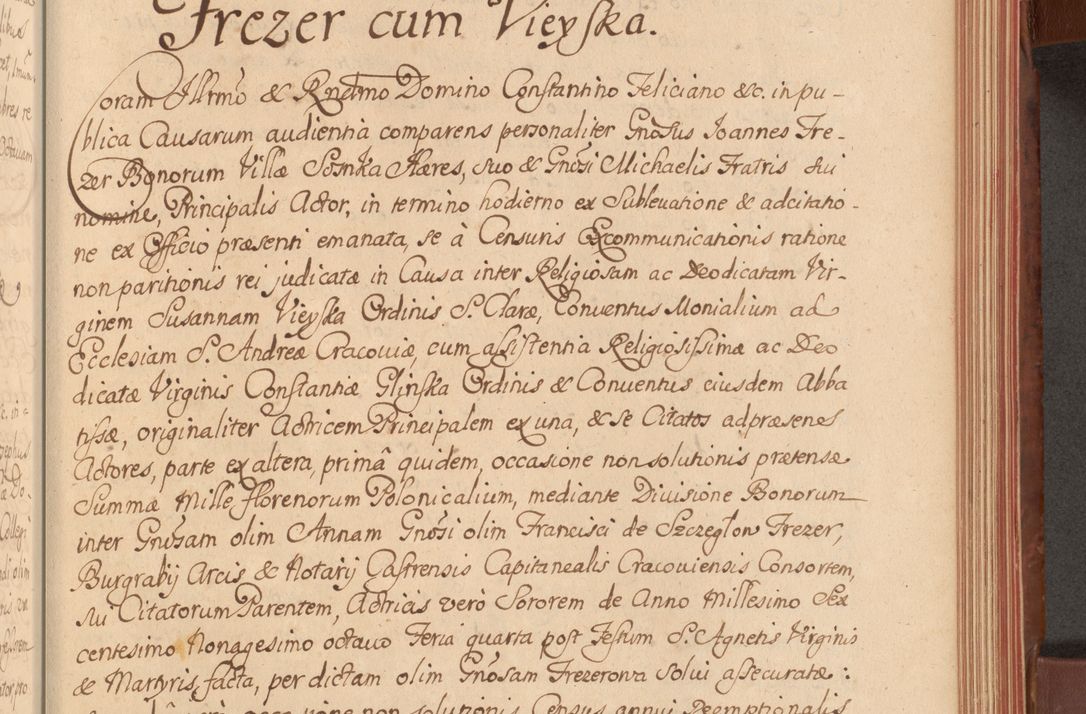 Frezer cum Vieyska.
Coram Illrmo & Rndmo Domino Constantino Feliciano &c. in pu-
blica Causarum audientia comparens personaliter Gnosus Joannes Fre-
zer Bonorum Villæ Sosnka Hæres, suo & Gnosi Michaelis Fratris sui
nomine, Principalis Actor, in termino hodierno ex Sublevatione & adcitatio-
ne ex Officio præsenti emanata, se à Censuris Excommunicationis ratione
non paritionis rei judicatæ in Causa inter Religiosam ac Deodicatam Vir-
ginem Susannam Vieyska Ordinis S. Claræ, Conventus Monialium ad
Ecclesiam S. Andreæ Cracoviæ, cum assistentia Religiosissimæ ac Deo
dicatæ Virginis Constantiæ Glinska Ordinis & Conventus eiusdem Abba
tissæ, originaliter Actricem Principalem ex una, & se Citatos ad præsens
Actores, parte ex altera, primâ quidem, occasione non solutionis prætensæ
Summæ Mille florenorum Polonicalium, mediante Divisione Bonorum
inter Gnosam olim Annam Gnosi olim Francisci de Szczegłow Frezer,
Burgrabij Arcis & Notarij Castrensis Capitanealis Cracoviensis Consortem,
sui Citatorum Parentem, Actricis verò Sororem de Anno Millesimo Sex
centesimo Nonagesimo octavo Feria quarta post Festum S. Agnetis Virginis
& Martyris, facta, per dictam olim Gnosam Frezerowa solvi assecuratæ:
occasione non solutionis Census annui Reemptionalis